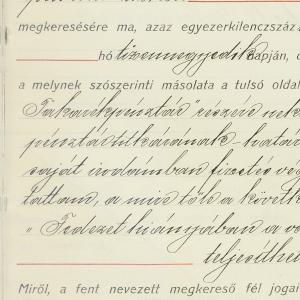 megkeresésére ma, azaz egyezerkilenczszáz
hó tizennegyedik napján, d
a melynek szószerinti másolata a tulsó oldal
Takarékpénztár" részére nek
pénztár titkárának – határ
saját irodámban fizetés vég
tattam, a mire tőle a követk
„Fedezet hiányjában a vá
teljesíthet
Miről, a fent nevezett megkereső fél jogai